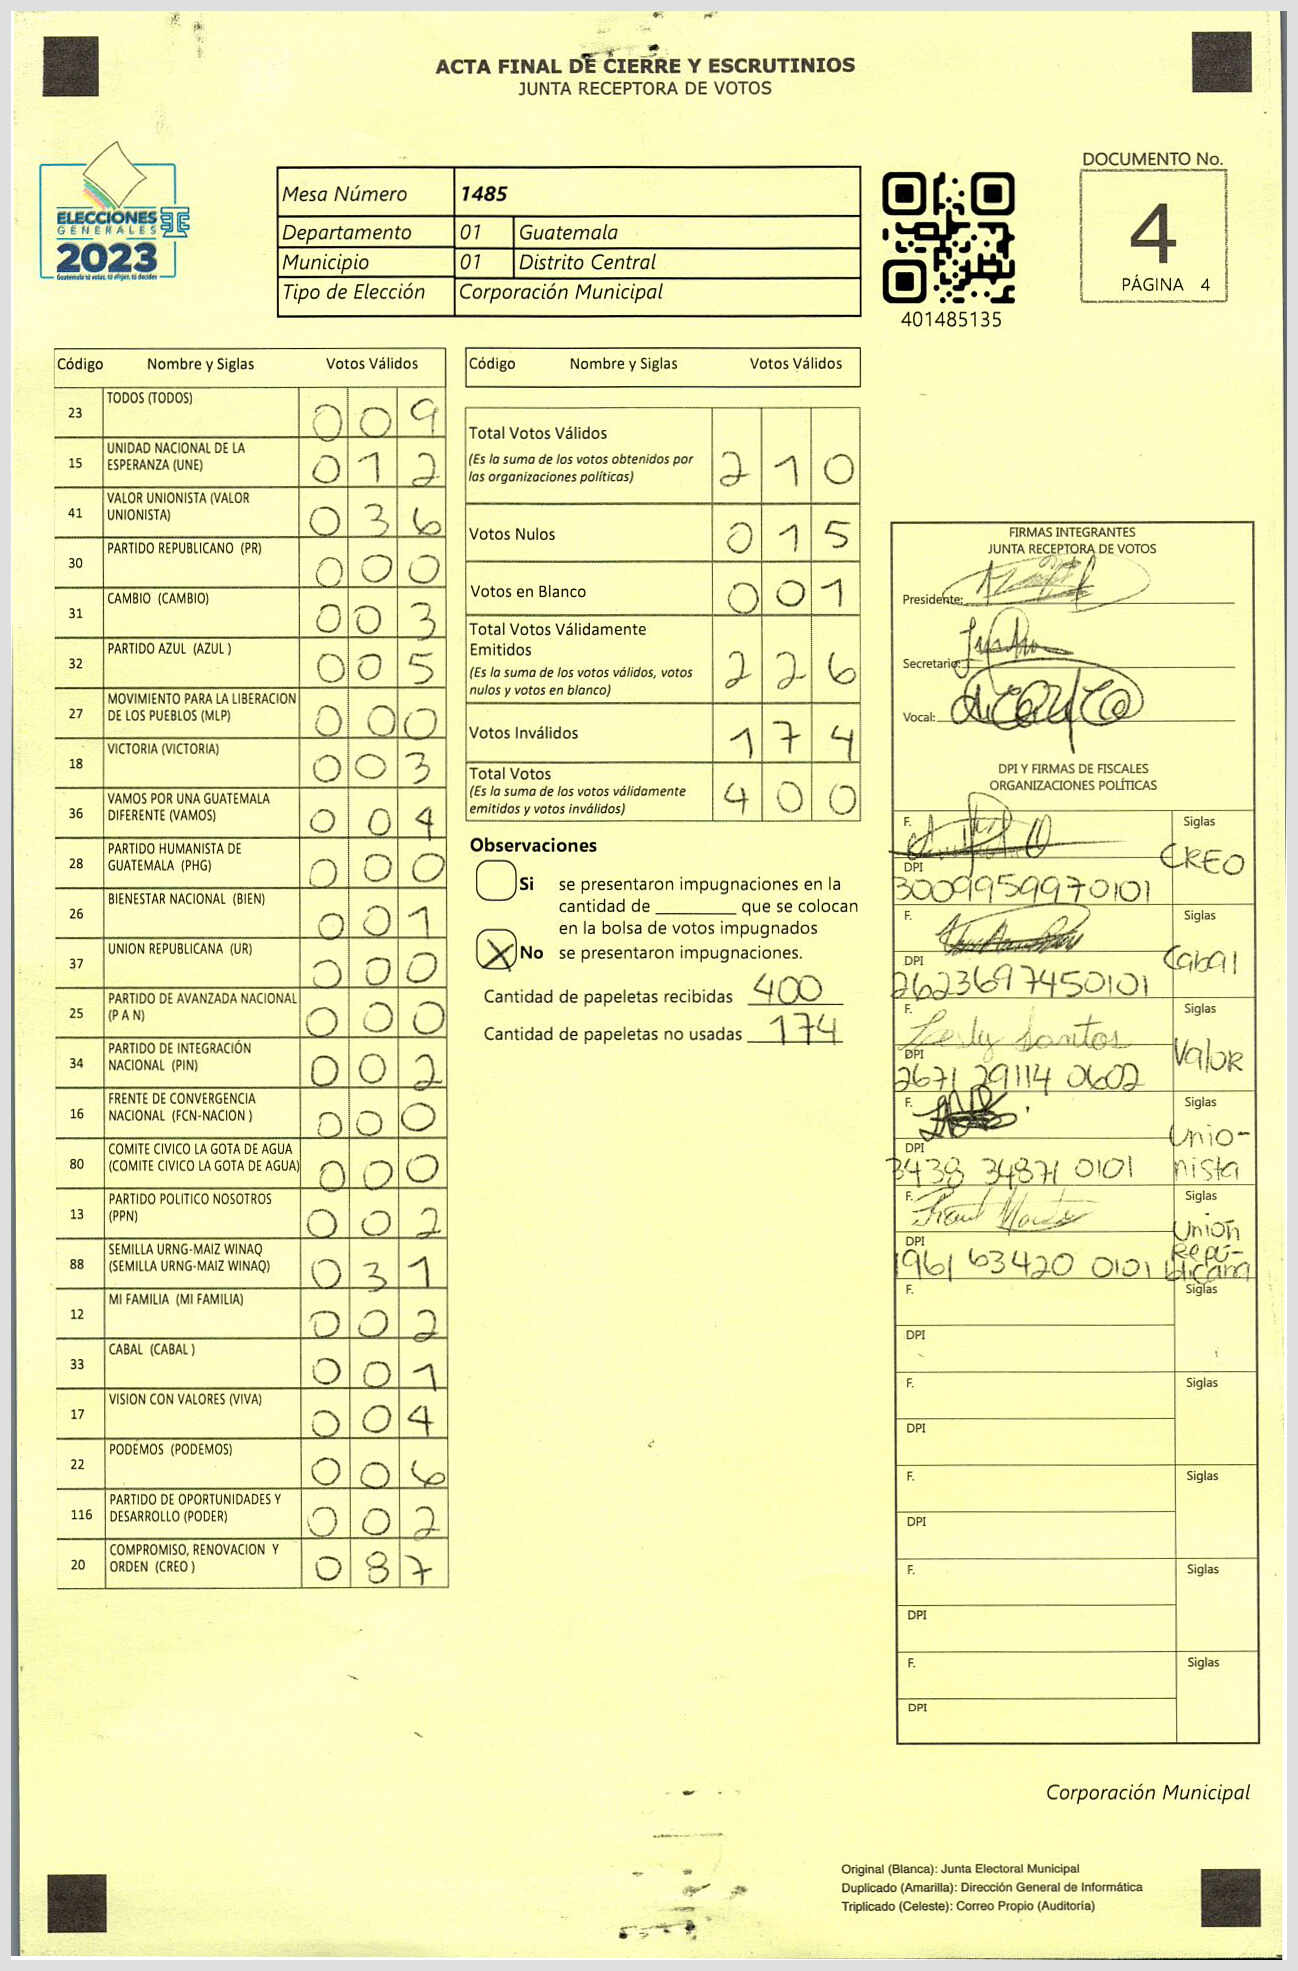 ACTA FINAL DE CIERRE Y ESCRUTINIOS
JUNTA RECEPTORA DE VOTOS
ELECCIONES
GENERALES
2023
Guatemala tú votas, tú eliges, tú decides
Mesa Número 1485
Departamento 01 Guatemala
Municipio 01 Distrito Central
Tipo de Elección Corporación Municipal
401485135
DOCUMENTO No.
4
PÁGINA 4
Código Nombre y Siglas Votos Válidos
23 TODOS (TODOS) 0 0 9
15 UNIDAD NACIONAL DE LA ESPERANZA (UNE) 0 1 2
41 VALOR UNIONISTA (VALOR UNIONISTA) 0 3 6
30 PARTIDO REPUBLICANO (PR) 0 0 0
31 CAMBIO (CAMBIO) 0 0 3
32 PARTIDO AZUL (AZUL ) 0 0 5
27 MOVIMIENTO PARA LA LIBERACION DE LOS PUEBLOS (MLP) 0 0 0
18 VICTORIA (VICTORIA) 0 0 3
36 VAMOS POR UNA GUATEMALA DIFERENTE (VAMOS) 0 0 4
28 PARTIDO HUMANISTA DE GUATEMALA (PHG) 0 0 0
26 BIENESTAR NACIONAL (BIEN) 0 0 1
37 UNION REPUBLICANA (UR) 0 0 0
25 PARTIDO DE AVANZADA NACIONAL (P A N) 0 0 0
34 PARTIDO DE INTEGRACIÓN NACIONAL (PIN) 0 0 2
16 FRENTE DE CONVERGENCIA NACIONAL (FCN-NACION ) 0 0 0
80 COMITE CIVICO LA GOTA DE AGUA (COMITE CIVICO LA GOTA DE AGUA) 0 0 0
13 PARTIDO POLITICO NOSOTROS (PPN) 0 0 2
88 SEMILLA URNG-MAIZ WINAQ (SEMILLA URNG-MAIZ WINAQ) 0 3 1
12 MI FAMILIA (MI FAMILIA) 0 0 2
33 CABAL (CABAL ) 0 0 1
17 VISION CON VALORES (VIVA) 0 0 4
22 PODEMOS (PODEMOS) 0 0 6
116 PARTIDO DE OPORTUNIDADES Y DESARROLLO (PODER) 0 0 2
20 COMPROMISO, RENOVACION Y ORDEN (CREO ) 0 8 7
Código Nombre y Siglas Votos Válidos
Total Votos Válidos
(Es la suma de los votos obtenidos por
las organizaciones políticas) 2 1 0
Votos Nulos 0 1 5
Votos en Blanco 0 0 1
Total Votos Válidamente
Emitidos
(Es la suma de los votos válidos, votos
nulos y votos en blanco) 2 2 6
Votos Inválidos 1 7 4
Total Votos
(Es la suma de los votos válidamente
emitidos y votos inválidos) 4 0 0
Observaciones
Si se presentaron impugnaciones en la
cantidad de ________ que se colocan
en la bolsa de votos impugnados
X No se presentaron impugnaciones.
Cantidad de papeletas recibidas 400
Cantidad de papeletas no usadas 174
FIRMAS INTEGRANTES
JUNTA RECEPTORA DE VOTOS
Presidente:
Secretario:
Vocal:
DPI Y FIRMAS DE FISCALES
ORGANIZACIONES POLÍTICAS
F. Siglas
CREO
DPI
3009959970101
F. Siglas
Cabal
DPI
2623697450101
F. Lesly Santos Siglas
Valor
DPI
2671 29114 0602
F. Siglas
Unio-
nista
DPI
3438 34871 0101
F. Siglas
Unión
Repú-
blicana
DPI
1961 63420 0101
F. Siglas
DPI
F. Siglas
DPI
F. Siglas
DPI
F. Siglas
DPI
F. Siglas
DPI
Corporación Municipal
Original (Blanca): Junta Electoral Municipal
Duplicado (Amarilla): Dirección General de Informática
Triplicado (Celeste): Correo Propio (Auditoría)